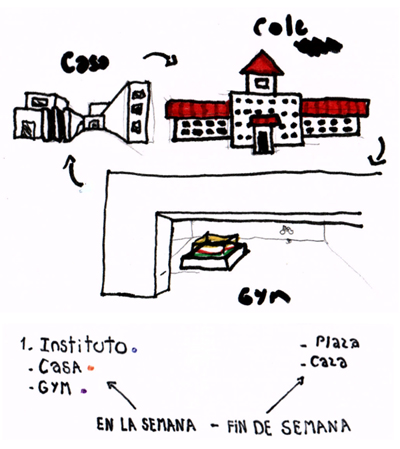 Cole
Casa
Gym
1. Instituto.
- CASA
- GYM
- Plaza
- Caza
EN LA SEMANA - FIN DE SEMANA